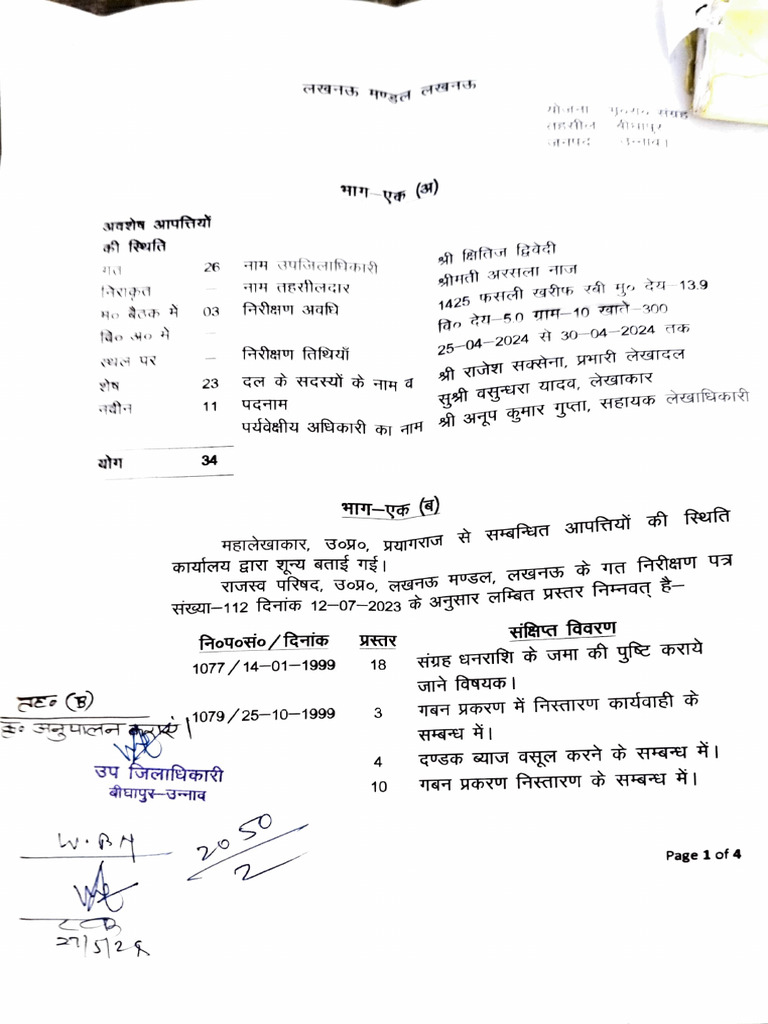 लखनऊ मण्डल लखनऊ
योजना मु०रा० संग्रह
तहसील बीघापुर
जनपद उन्नाव।
भाग–एक (अ)
अवशेष आपत्तियों
की स्थिति
गत 26 नाम उपजिलाधिकारी श्री क्षितिज द्विवेदी
निराकृत – नाम तहसीलदार श्रीमती अरसला नाज
म० बैठक में 03 निरीक्षण अवधि 1425 फसली खरीफ रबी मु० देय–13.9
वि० अ० मे – वि० देय–5.0 ग्राम–10 खाते–300
स्थल पर – निरीक्षण तिथियाँ 25-04-2024 से 30-04-2024 तक
शेष 23 दल के सदस्यों के नाम व श्री राजेश सक्सेना, प्रभारी लेखादल
नवीन 11 पदनाम सुश्री वसुन्धरा यादव, लेखाकार
पर्यवेक्षीय अधिकारी का नाम श्री अनूप कुमार गुप्ता, सहायक लेखाधिकारी
योग 34
भाग–एक (ब)
महालेखाकार, उ०प्र०, प्रयागराज से सम्बन्धित आपत्तियों की स्थिति
कार्यालय द्वारा शून्य बताई गई।
राजस्व परिषद, उ०प्र०, लखनऊ मण्डल, लखनऊ के गत निरीक्षण पत्र
संख्या–112 दिनांक 12-07-2023 के अनुसार लम्बित प्रस्तर निम्नवत् है–
नि०प०सं०/दिनांक प्रस्तर संक्षिप्त विवरण
1077/14-01-1999 18 संग्रह धनराशि के जमा की पुष्टि कराये
जाने विषयक।
1079/25-10-1999 3 गबन प्रकरण में निस्तारण कार्यवाही के
सम्बन्ध में।
4 दण्डक ब्याज वसूल करने के सम्बन्ध में।
10 गबन प्रकरण निस्तारण के सम्बन्ध में।
तह० (B)
कृ० अनुपालन कराएं।
उप जिलाधिकारी
बीघापुर–उन्नाव
W.BN
2050
2
27/5/24
Page 1 of 4